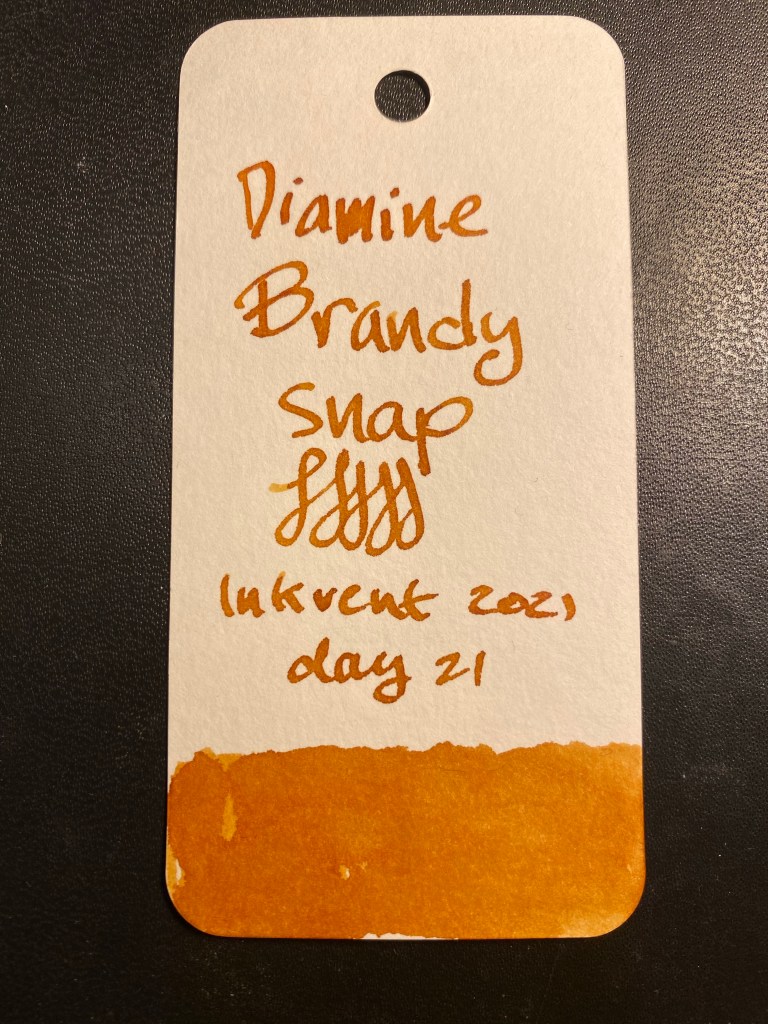 Diamine
Brandy
Snap
Inkvent 2021
day 21